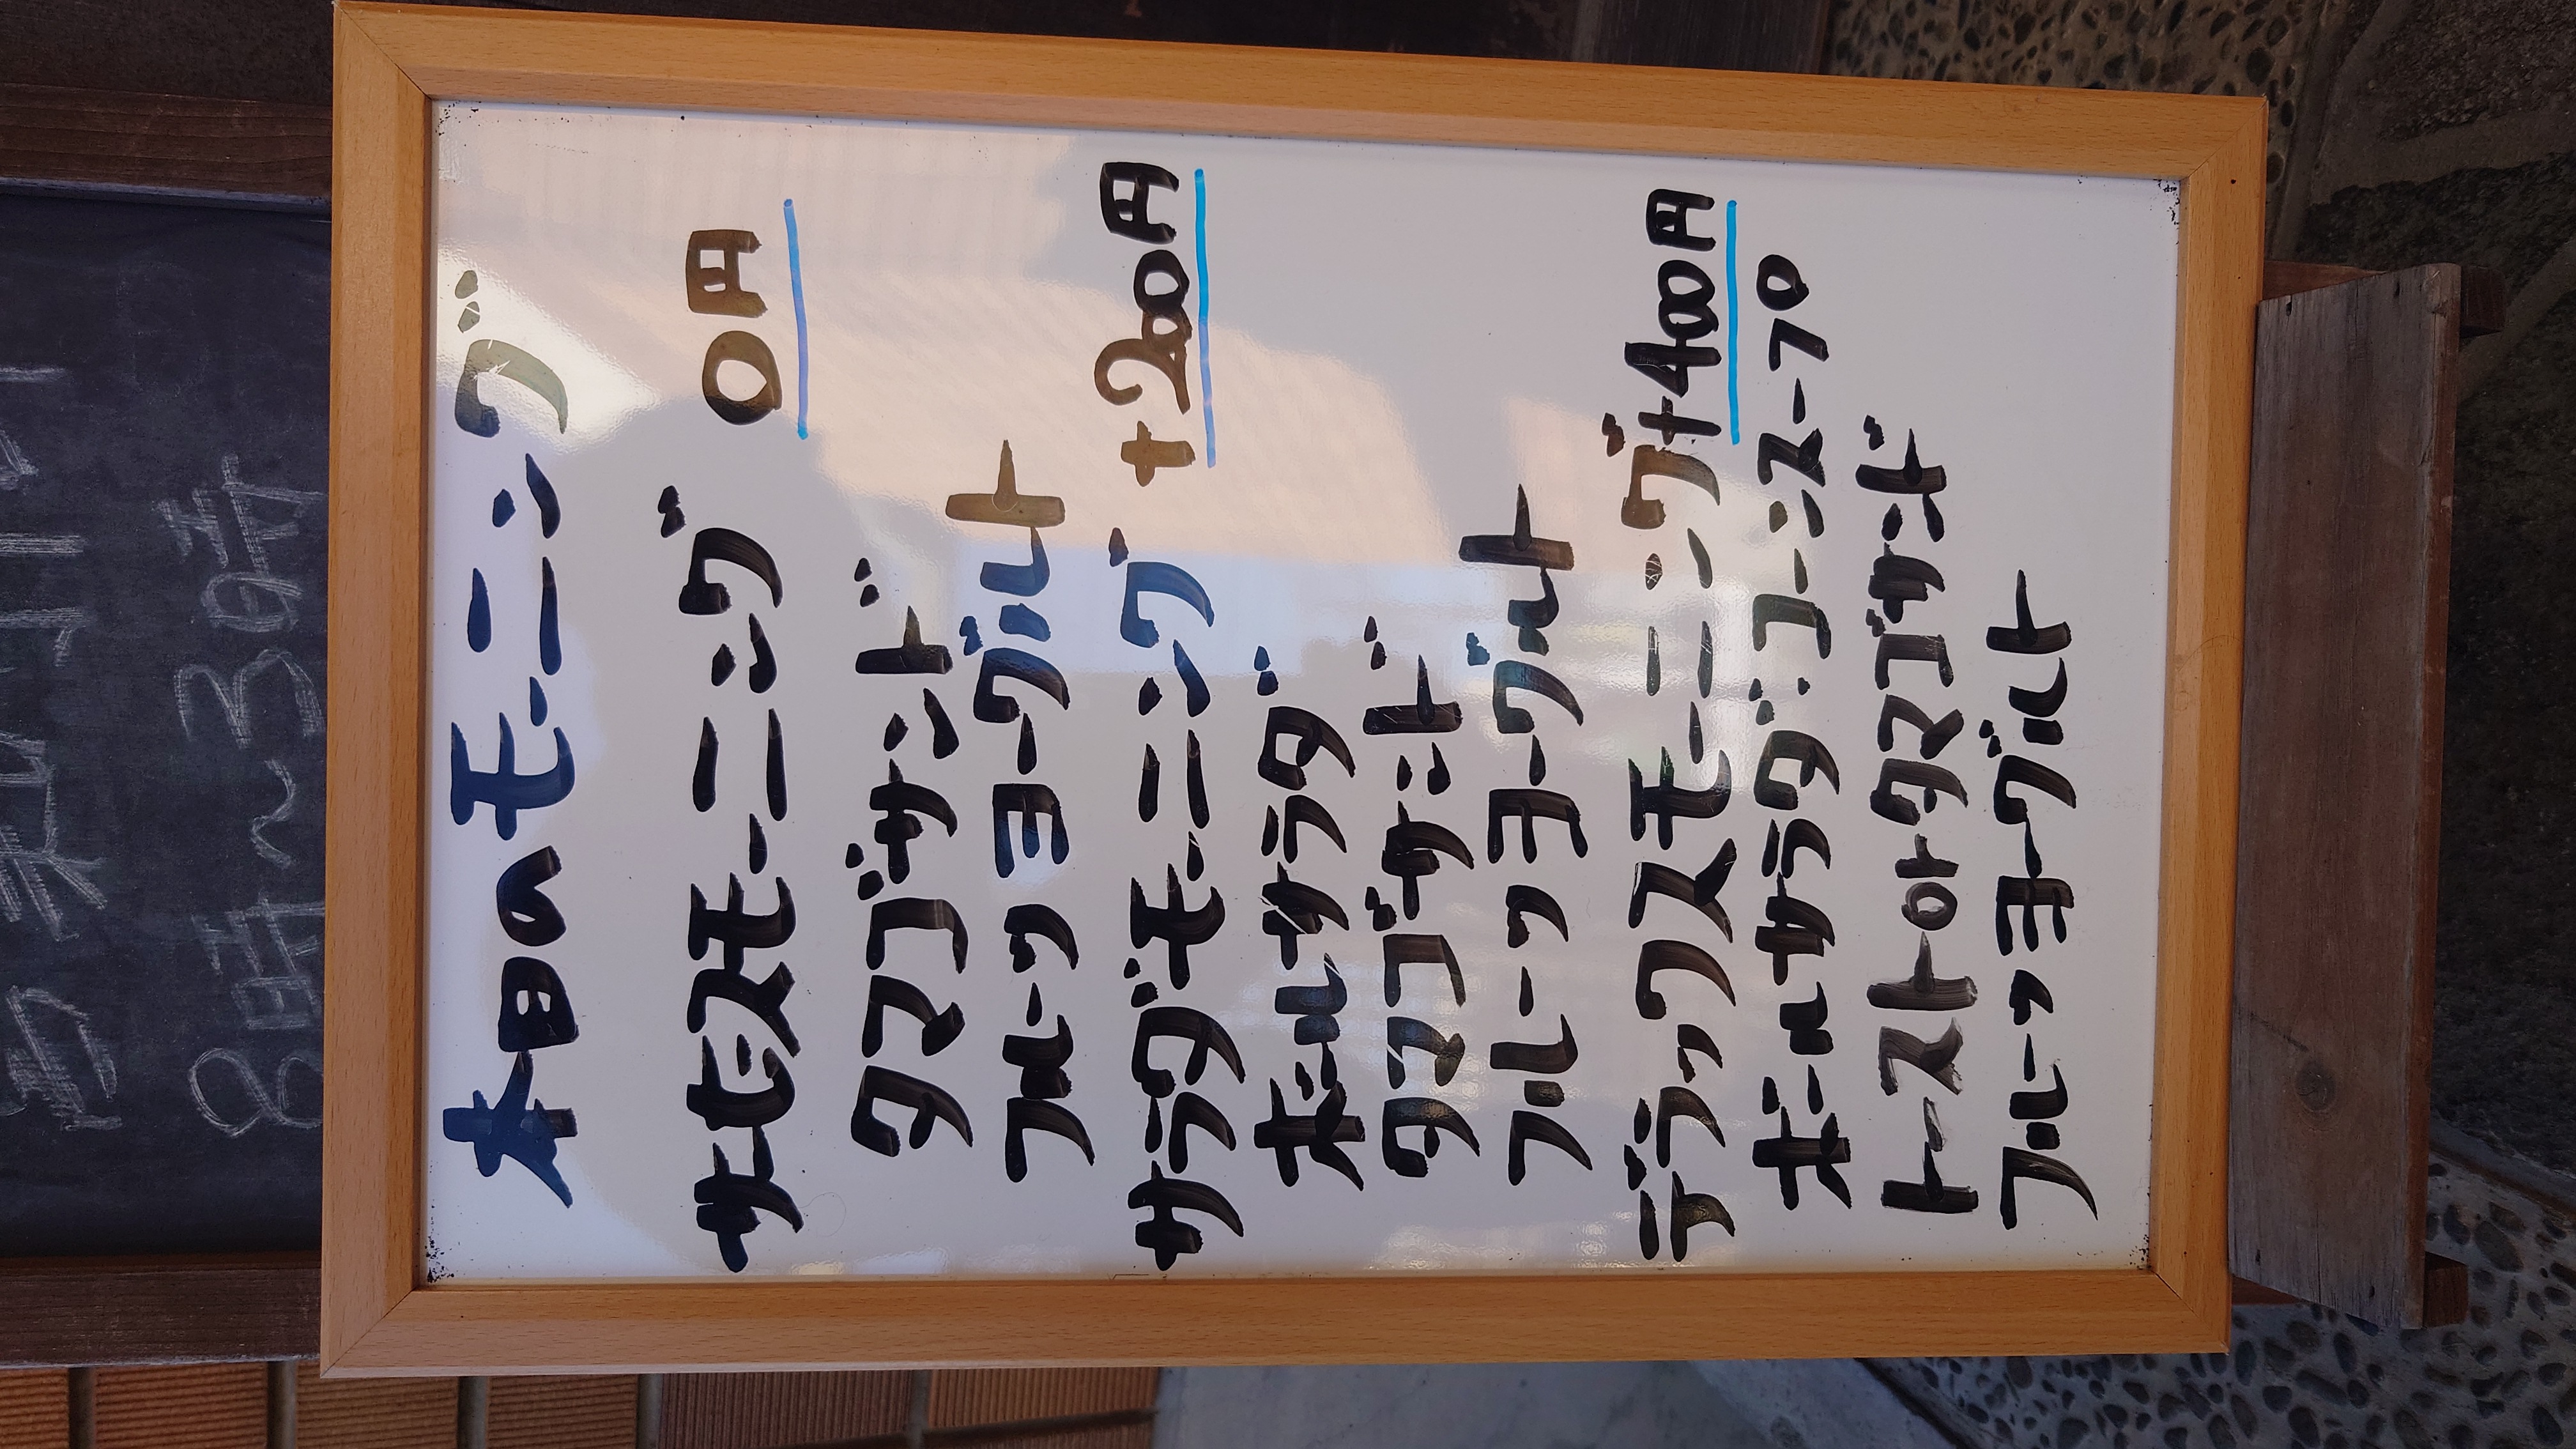 本日のモーニング
サービスモーニング 0円
タマゴサンド
フルーツヨーグルト
サラダモーニング +200円
ボールサラダ
タマゴサンド
フルーツヨーグルト
デラックスモーニング+400円
ボールサラダ・コーンスープ
トーストorタマゴサンド
フルーツヨーグルト